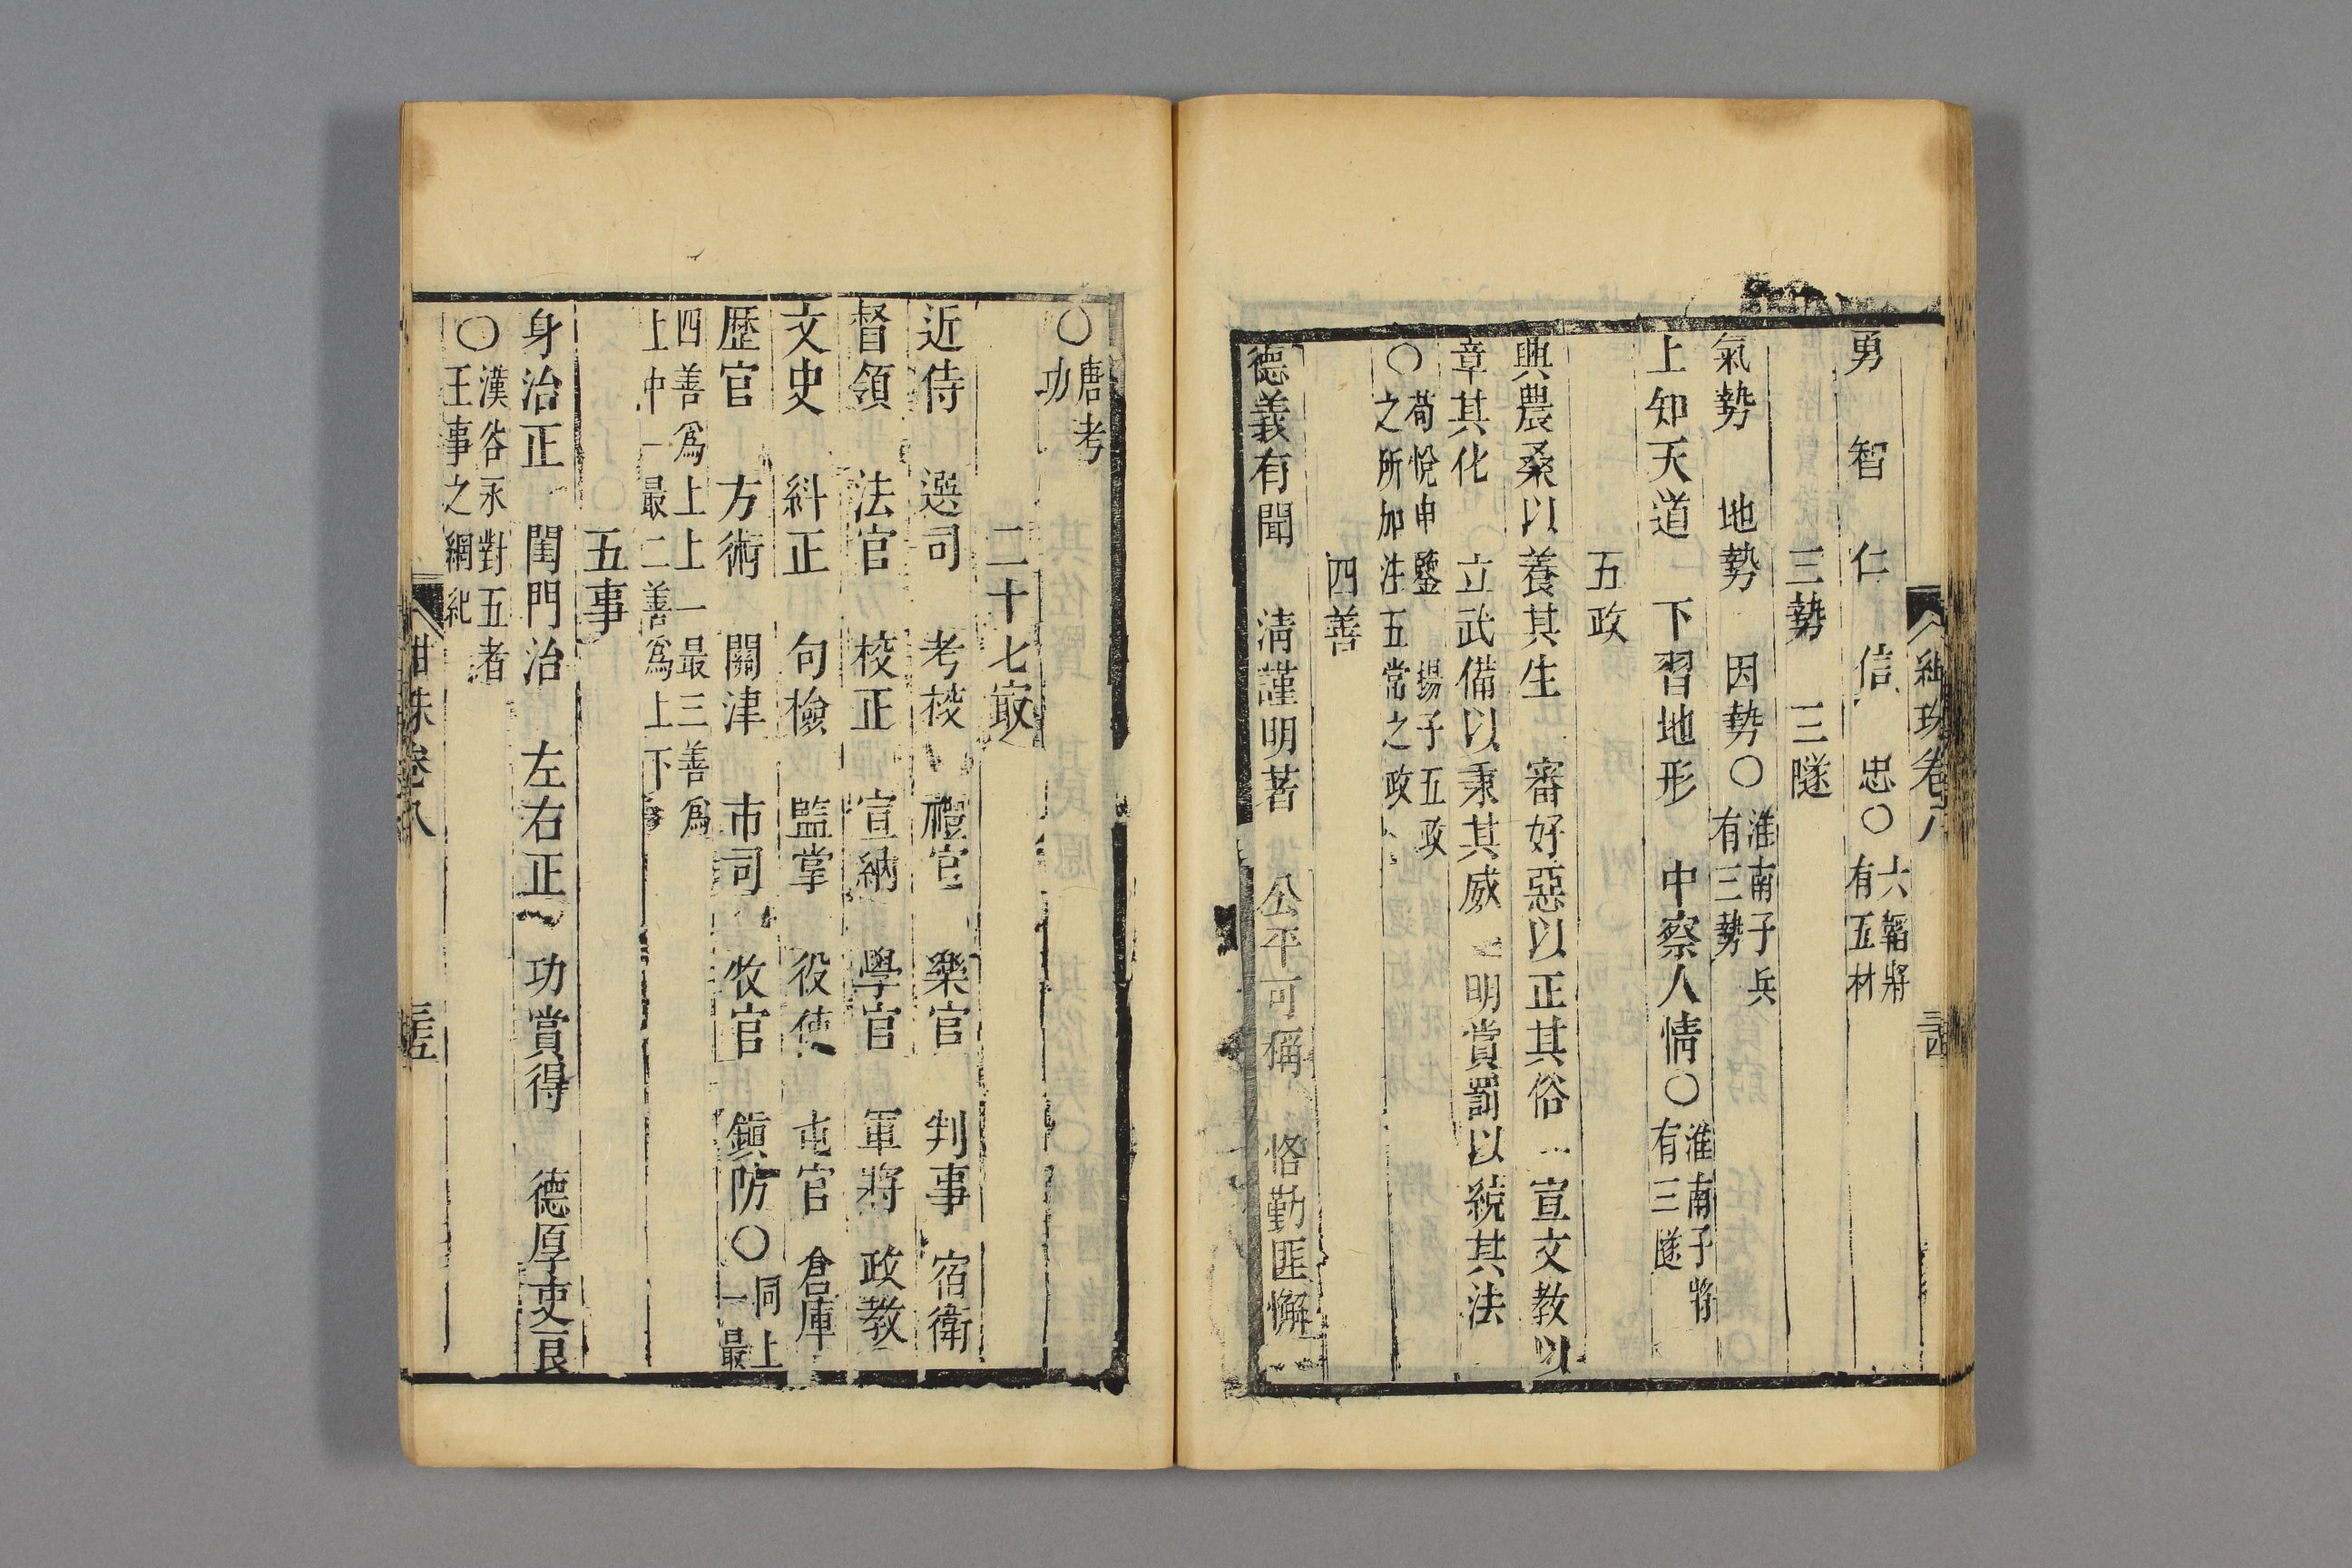 紺珠卷八 三十四
勇 智 仁 信 忠○六韜將有五材
三勢 三隧
氣勢 地勢 因勢○淮南子兵有三勢
上知天道 下習地形 中察人情○淮南子將有三隧
五政
興農桑以養其生 審好惡以正其俗 宣文教以
章其化 立武備以秉其威 明賞罰以統其法
○荀悅申鑒 揚子五政之所加注五常之政
四善
德義有聞 淸謹明著 公平可稱 恪勤匪懈
○唐考功
二十七㝡
近侍 選司 考校 禮官 樂官 判事 宿衛
督領 法官 校正 宣納 學官 軍將 政教
文史 糾正 句檢 監掌 役使 屯官 倉庫
歷官 方術 關津 市司 牧官 鎭防○同上一最
四善爲上上一最三善爲上中一最二善爲上下
五事
身治正 閨門治 左右正 功賞得 德厚吏良
○漢谷永對五者王事之綱紀
紺珠卷八 三十五